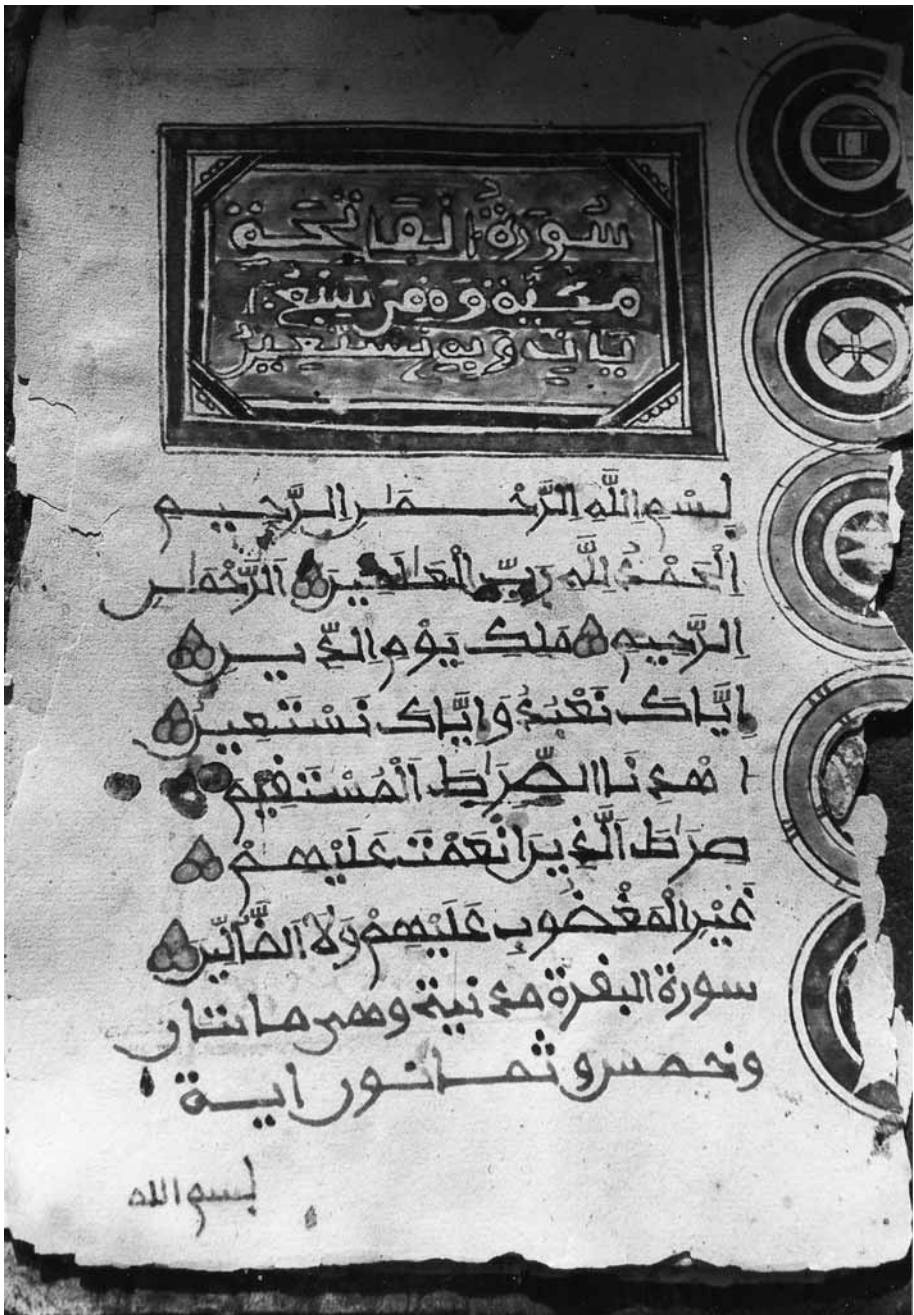 سُورَةُ الْفَاتِحَةِ
مَكِّيَّةٌ وَهِيَ سَبْعُ
بِسْمِ اللَّهِ الرَّحْمَٰنِ الرَّحِيمِ
اَلْحَمْدُ لِلَّهِ رَبِّ الْعَٰلَمِينَ اَلرَّحْمَٰنِ
اِلرَّحِيمِ مَلِكِ يَوْمِ اِلدِّينِ
اِيَّاكَ نَعْبُدُ وَاِيَّاكَ نَسْتَعِينُ
اهْدِنَا الصِّرَٰطَ اَلْمُسْتَقِيمَ
صِرَٰطَ اَلَّذِينَ أنْعَمْتَ عَلَيْهِمْ
غَيْرِ الْمَغْضُوبِ عَلَيْهِمْ وَلَا اَلضَّالِّينَ
سورة البقرة مدنية وهي مائتان
وخمس وثمانون اية
بسم الله